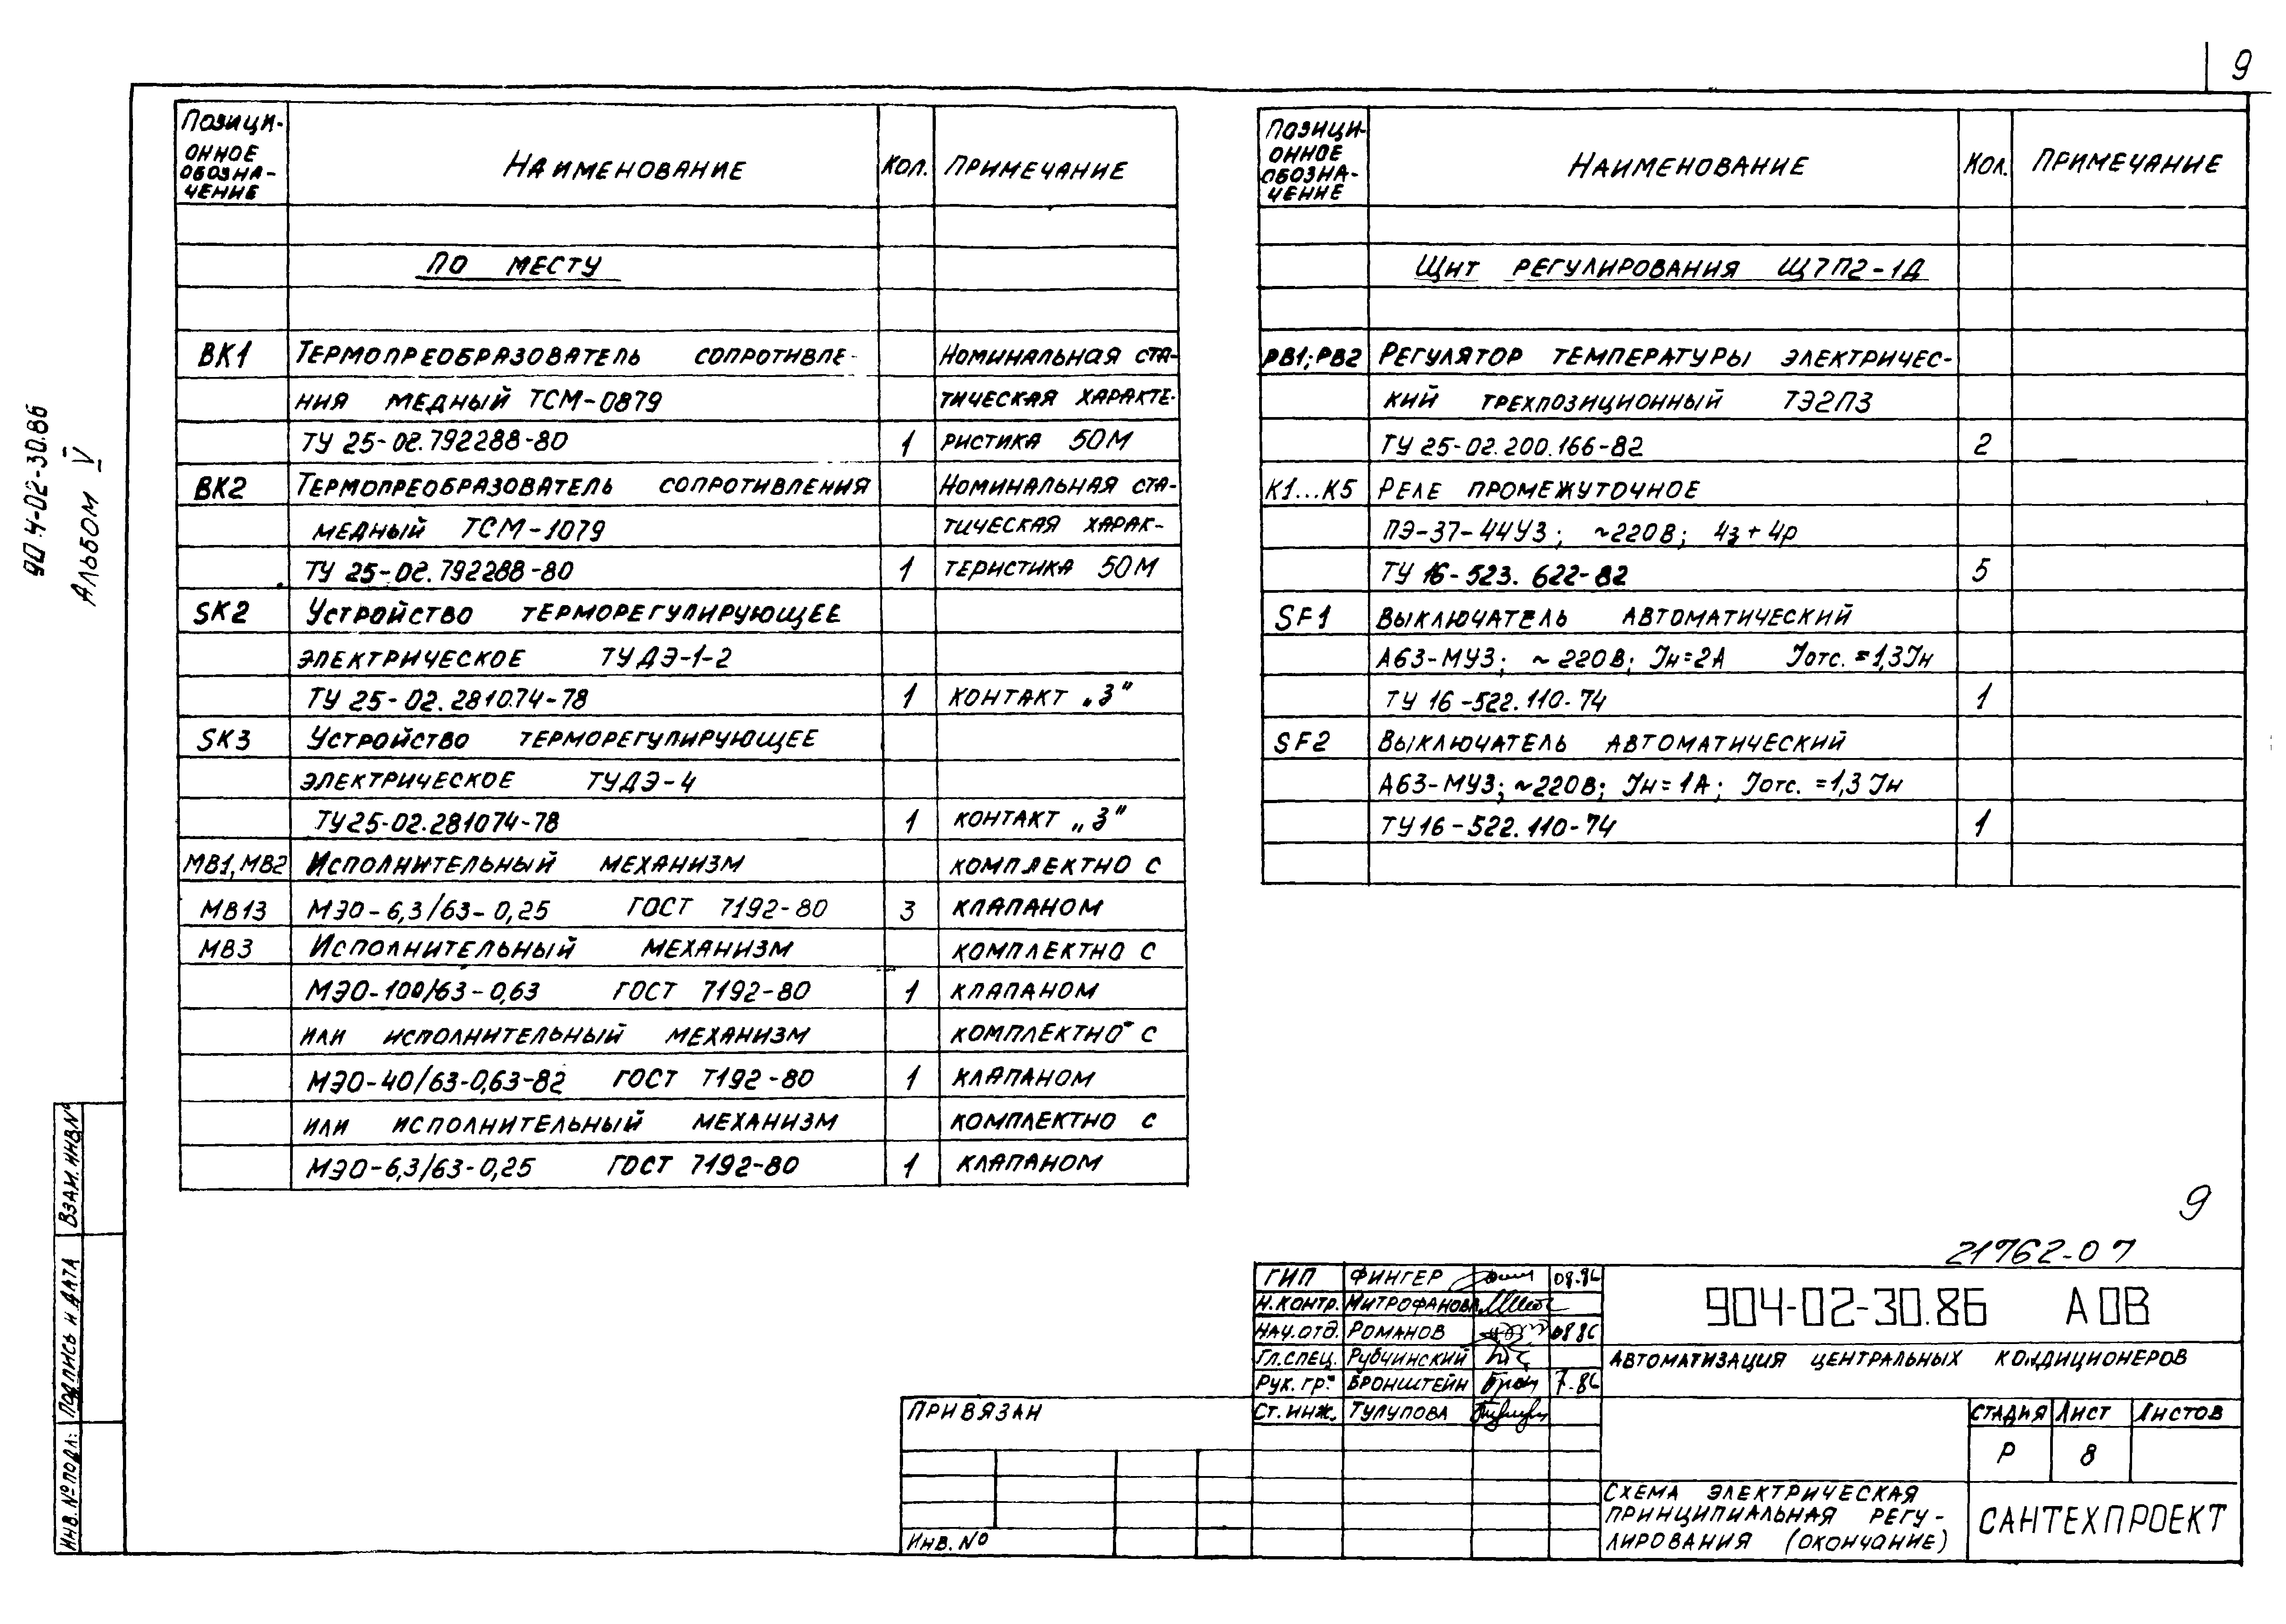 9
904-02-30.86
Альбом V
Позици-
онное
обозна-
чение
Наименование
Кол.
Примечание
По месту
ВК1 Термопреобразователь сопротивле- Номинальная ста-
ния медный ТСМ-0879 тическая характе-
ТУ 25-02.792288-80 1 ристика 50М
ВК2 Термопреобразователь сопротивления Номинальная ста-
медный ТСМ-1079 тическая харак-
ТУ 25-02.792288-80 1 теристика 50М
SK2 Устройство терморегулирующее
электрическое ТУДЭ-1-2
ТУ 25-02.281074-78 1 контакт „З"
SK3 Устройство терморегулирующее
электрическое ТУДЭ-4
ТУ25-02.281074-78 1 контакт „З"
МВ1, МВ2 Исполнительный механизм комплектно с
МВ13 МЭО-6,3/63-0,25 ГОСТ 7192-80 3 клапаном
МВ3 Исполнительный механизм комплектно с
МЭО-100/63-0,63 ГОСТ 7192-80 1 клапаном
или исполнительный механизм комплектно с
МЭО-40/63-0,63-82 ГОСТ 7192-80 1 клапаном
или исполнительный механизм комплектно с
МЭО-6,3/63-0,25 ГОСТ 7192-80 1 клапаном
Позици-
онное
обозна-
чение
Наименование
Кол.
Примечание
Щит регулирования Щ7П2-1Д
РВ1; РВ2 Регулятор температуры электричес-
кий трехпозиционный ТЭ2П3
ТУ 25-02.200.166-82 2
К1...К5 Реле промежуточное
ПЭ-37-44У3; ~220В; 4з+4р
ТУ 16-523.622-82 5
SF1 Выключатель автоматический
А63-МУ3; ~220В; Iн=2А Iотс.=1,3Iн
ТУ 16-522.110-74 1
SF2 Выключатель автоматический
А63-МУ3; ~220В; Iн=1А; Iотс.=1,3Iн
ТУ16-522.110-74 1
9
21762-07
ГИП Фингер 08.86
Н.контр. Митрофанова
Нач.отд. Романов 08 86
Гл.спец. Рубчинский
Рук. гр. Бронштейн 7.86
Ст. инж. Тулупова
904-02-30.86 АОВ
Автоматизация центральных кондиционеров
Стадия Лист Листов
Р 8
Схема электрическая
принципиальная регу-
лирования (окончание)
САНТЕХПРОЕКТ
Привязан
Инв. №
Взам. инв. №
Подпись и дата
Инв. № подл.